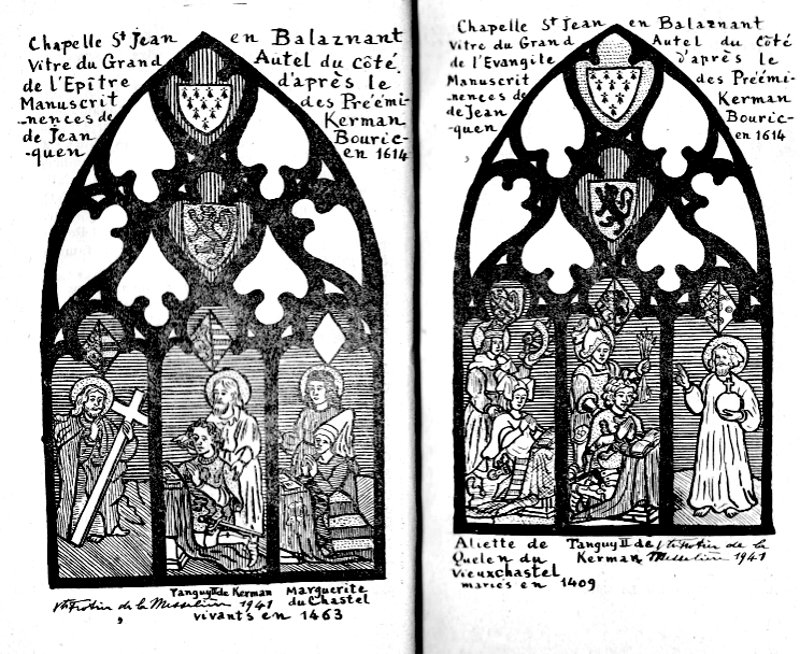 Chapelle St Jean en Balaznant
Vitre du Grand Autel du Côté
de l'Epître d'après le
Manuscrit des Préémi-
-nences de Kerman
de Jean Bouric-
-quen en 1614
Tanguy II de Kerman Marguerite
Vte Frotier de la Messelière 1941 du Chastel
vivants en 1463
Chapelle St Jean en Balaznant
Vitre du Grand Autel du Côté
de l'Evangile d'après le
Manuscrit des Préémi-
-nences de Kerman
de Jean Bouric-
quen en 1614
Aliette de Tanguy II de Vte Frotier de la
Quelen du Kerman Messelière 1941
Vieuxchastel
mariés en 1409